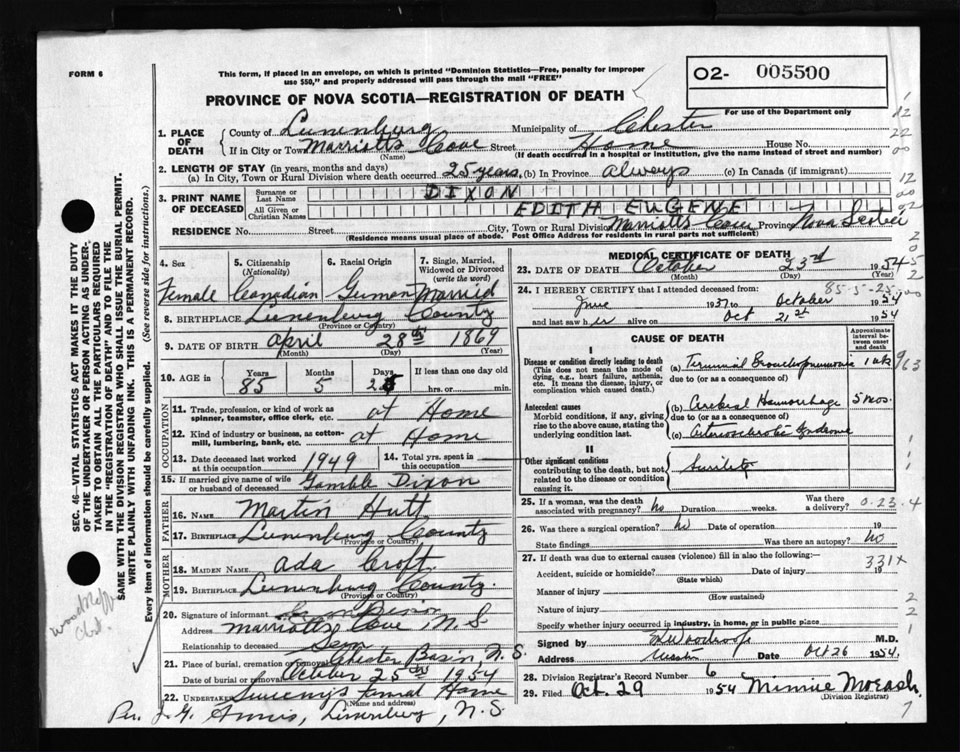 FORM 6
This form, if placed in an envelope, on which is printed "Dominion Statistics—Free, penalty for improper
use $50," and properly addressed will pass through the mail "FREE"
02- 005500
For use of the Department only
PROVINCE OF NOVA SCOTIA—REGISTRATION OF DEATH
1. PLACE OF DEATH
County of Lunenburg Municipality of Chester
If in City or Town Marriotts Cove Street Home House No.
(Name) (If death occurred in a hospital or institution, give the name instead of street and number)
2. LENGTH OF STAY (in years, months and days)
(a) In City, Town or Rural Division where death occurred 25 years (b) In Province always (c) In Canada (if immigrant)
3. PRINT NAME OF DECEASED
Surname or Last Name DIXON
All Given or Christian Names EDITH EUGENE
RESIDENCE No. Street City, Town or Rural Division Marriotts Cove Province Nova Scotia
(Residence means usual place of abode. Post Office Address for residents in rural parts not sufficient)
4. Sex
Female
5. Citizenship
(Nationality)
Canadian
6. Racial Origin
German
7. Single, Married,
Widowed or Divorced
(write the word)
Married
8. BIRTHPLACE Lunenburg County
(Province or Country)
9. DATE OF BIRTH April 28th 1869
(Month) (Day) (Year)
10. AGE in Years Months Days If less than one day old
85 5 25 hrs. or min.
OCCUPATION
11. Trade, profession, or kind of work as
spinner, teamster, office clerk, etc. at Home
12. Kind of industry or business, as cotton-
mill, lumbering, bank, etc. at Home
13. Date deceased last worked
at this occupation 1949
14. Total yrs. spent in
this occupation
15. If married give name of wife
or husband of deceased Gamble Dixon
FATHER
16. NAME Martin Hutt
17. BIRTHPLACE Lunenburg County
(Province or Country)
MOTHER
18. MAIDEN NAME Ada Croft
19. BIRTHPLACE Lunenburg County
(Province or Country)
20. Signature of informant Dixon
Address Marriotts Cove, N.S.
Relationship to deceased Son
21. Place of burial, cremation or removal Chester Basin, N.S.
Date of burial or removal October 25th 1954
22. UNDERTAKER Sweenys Funeral Home
(Name and address)
Per. Lunenburg, N.S.
MEDICAL CERTIFICATE OF DEATH
23. DATE OF DEATH October 23rd 1954
(Month) (Day)
85-5-25
24. I HEREBY CERTIFY that I attended deceased from:
June 1937 to October 1954
and last saw her alive on Oct 21st 1954
CAUSE OF DEATH
Approximate
interval between
onset and
death
I
Disease or condition directly leading to death
(This does not mean the mode of
dying, e.g., heart failure, asthenia,
etc. It means the disease, injury, or
complication which caused death.)
(a) Terminal Bronchopneumonia 1 wk
due to (or as a consequence of)
Antecedent causes
Morbid conditions, if any, giving
rise to the above cause, stating the
underlying condition last.
(b) Cerebral Haemorrhage 5 mos.
due to (or as a consequence of)
(c) Arteriosclerotic Syndrome
II
Other significant conditions
contributing to the death, but not
related to the disease or condition
causing it.
Senility
25. If a woman, was the death
associated with pregnancy? No Duration weeks. Was there
a delivery? 0-23-4
26. Was there a surgical operation? No Date of operation 19
State findings Was there an autopsy? No
27. If death was due to external causes (violence) fill in also the following:—
331X
Accident, suicide or homicide? Date of injury 19
(State which)
Manner of injury
(How sustained)
Nature of injury
Specify whether injury occurred in industry, in home, or in public place
Signed by M.D.
Address Chester Date Oct 26 1954.
28. Division Registrar's Record Number 6
29. Filed Oct. 29 1954 Minnie
(Division Registrar)
SEC. 46—VITAL STATISTICS ACT MAKES IT THE DUTY
OF THE UNDERTAKER OR PERSON ACTING AS UNDER-
TAKER TO OBTAIN ALL THE PARTICULARS REQUIRED
IN THE "REGISTRATION OF DEATH" AND TO FILE THE
SAME WITH THE DIVISION REGISTRAR WHO SHALL ISSUE THE BURIAL PERMIT.
WRITE PLAINLY WITH UNFADING INK. THIS IS A PERMANENT RECORD.
Every item of information should be carefully supplied. (See reverse side for instructions.)